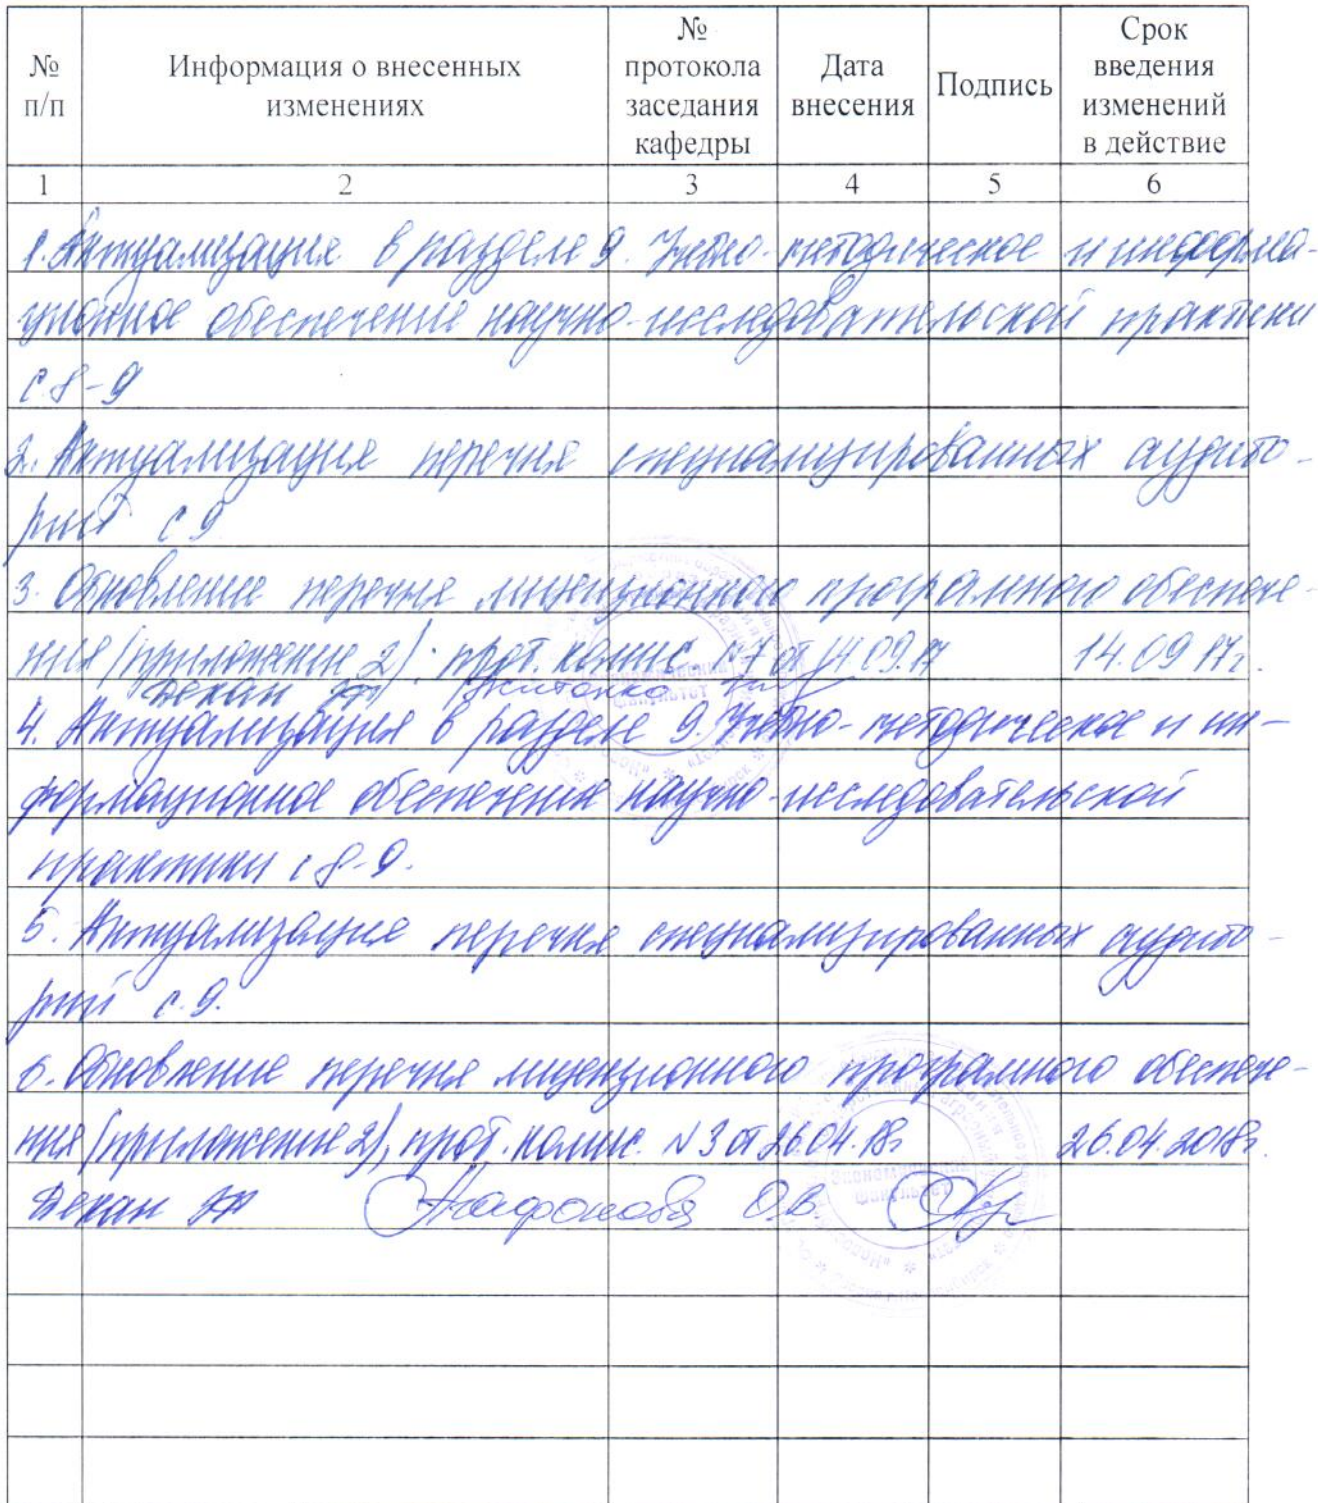 № п/п
Информация о внесенных изменениях
№ протокола заседания кафедры
Дата внесения
Подпись
Срок введения изменений в действие
1 2 3 4 5 6
1. Актуализация в разделе 9. Учебно-методическое и информа-
ционное обеспечение научно-исследовательской практики
с. 8-9
2. Актуализация перечня специализированных аудито-
рий с 9
3. Обновление перечня лицензионного программного обеспече-
ния (приложение 2): прот. комис. №7 от 14.09.17 14.09.17г.
Декан
4. Актуализация в разделе 9. Учебно-методическое и ин-
формационное обеспечение научно-исследовательской
практики с 8-9.
5. Актуализация перечня специализированных аудито-
рий с. 9.
6. Обновление перечня лицензионного программного обеспече-
ния (приложение 2), прот. комис. №3 от 26.04.18г 26.04.2018г.
Декан Агафонова О.В.
Экономический
факультет